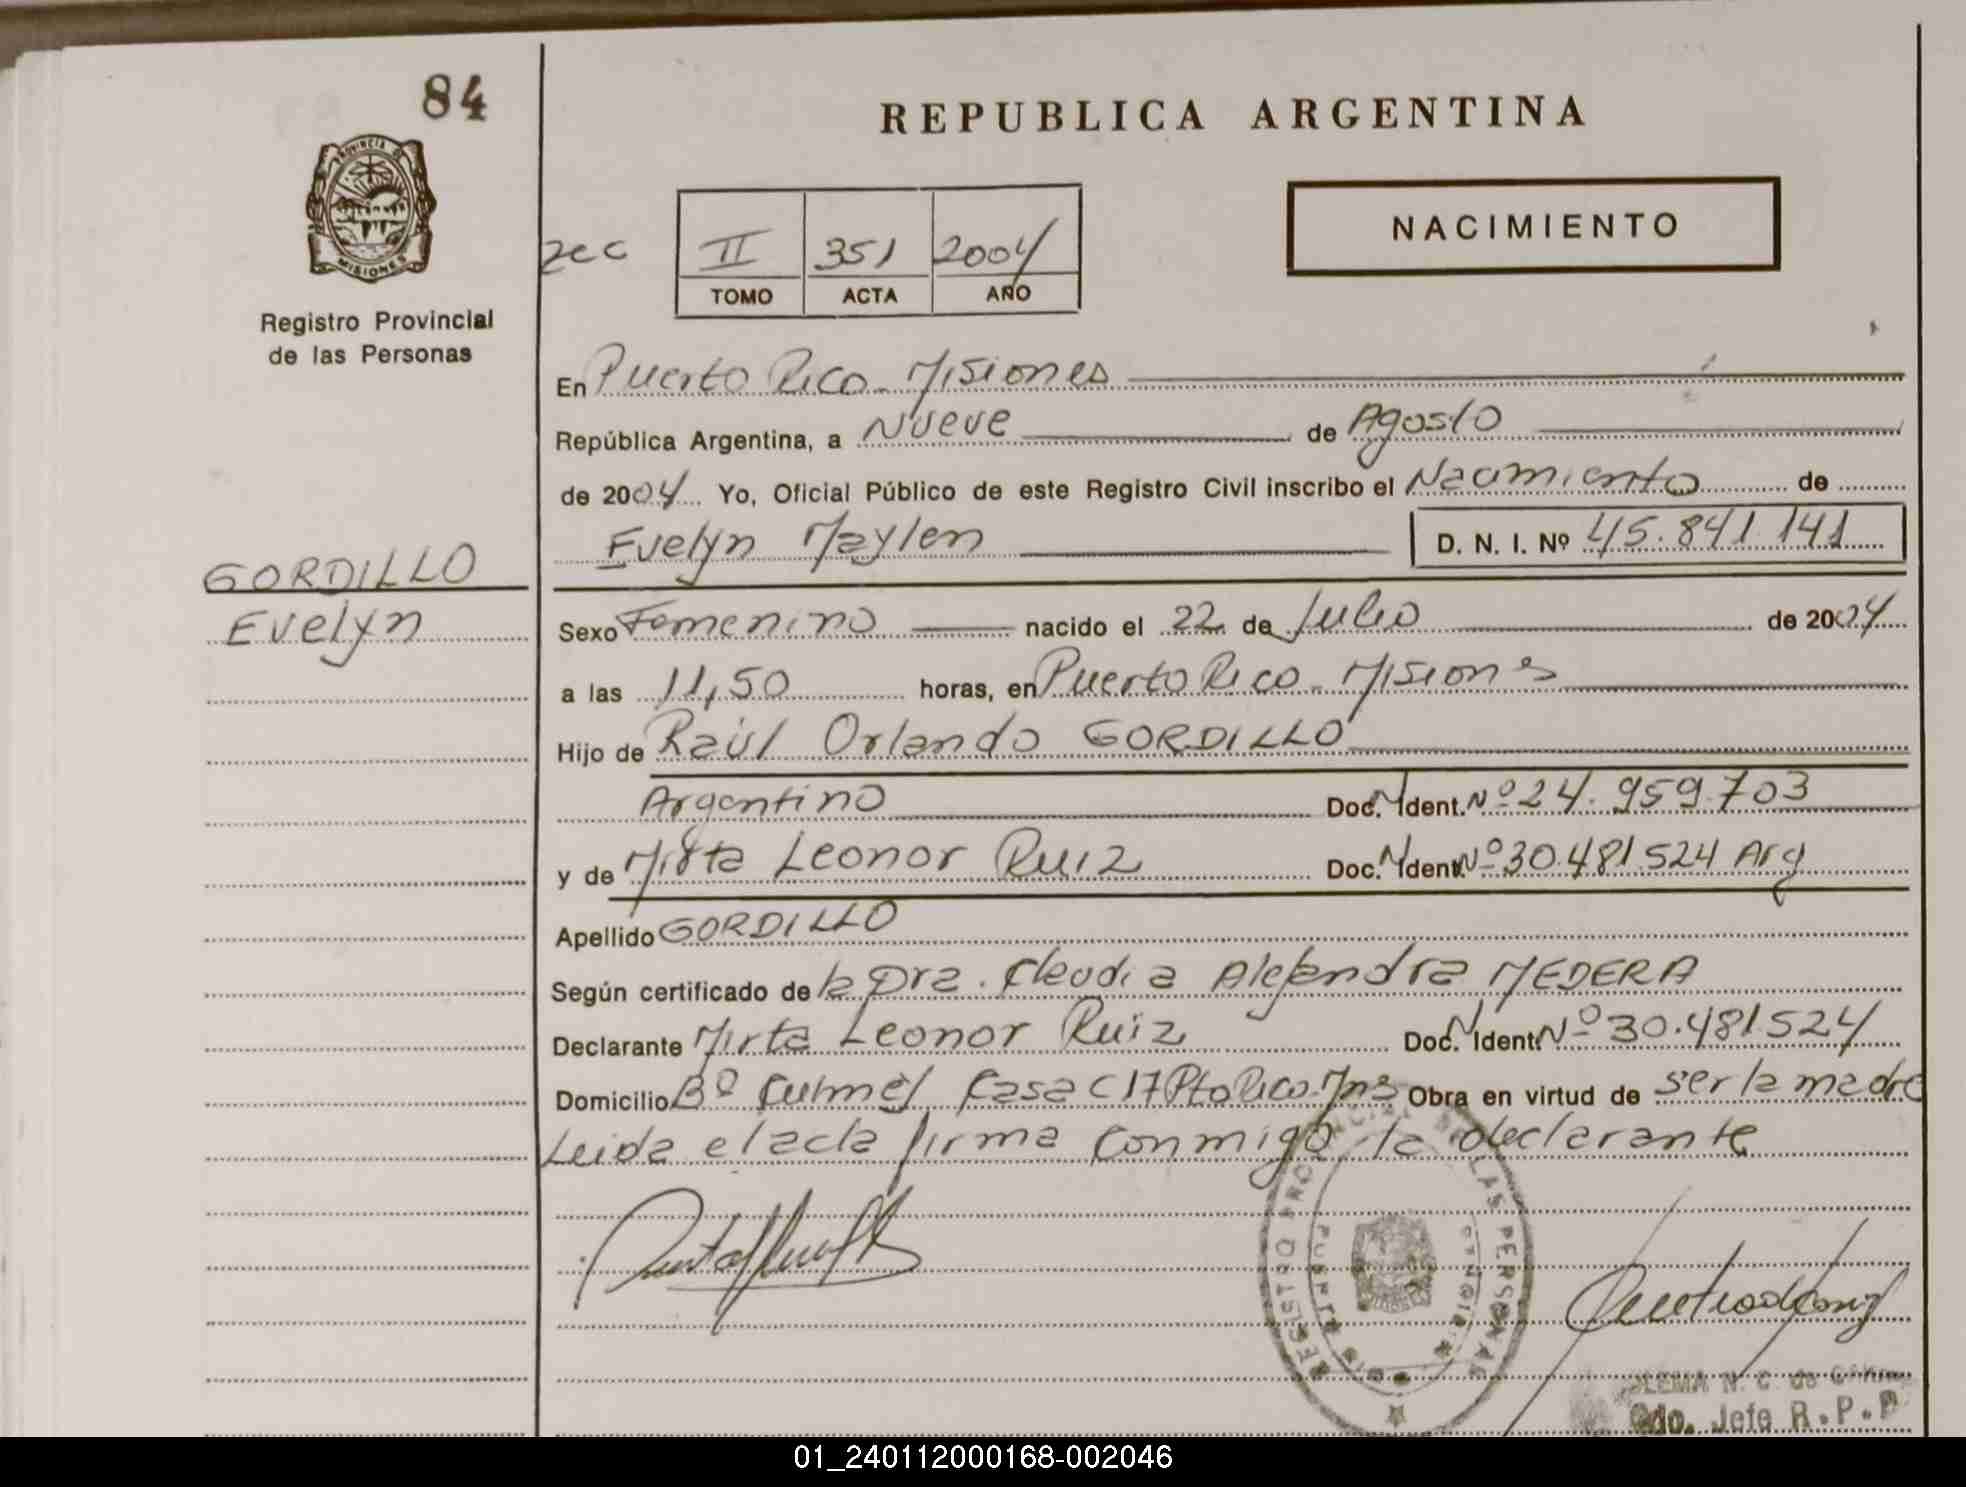 84
REPUBLICA ARGENTINA
PROVINCIA DE
MISIONES
Registro Provincial
de las Personas
NACIMIENTO
Sec II 351 2004
TOMO ACTA AÑO
En Puerto Rico - Misiones
República Argentina, a Nueve de Agosto
de 2004 Yo, Oficial Público de este Registro Civil inscribo el Nacimiento de
Evelyn Maylen D. N. I. Nº 45.841.141
GORDILLO
Evelyn
Sexo Femenino nacido el 22 de Julio de 2004
a las 11,50 horas, en Puerto Rico - Misiones
Hijo de Raúl Orlando GORDILLO
Argentino Doc. N. Ident. Nº 24.959.703
y de Mirta Leonor Ruiz Doc. N. Ident. Nº 30.481.524 Arg
Apellido GORDILLO
Según certificado de la Dra. Claudia Alejandra MEDERA
Declarante Mirta Leonor Ruiz Doc. N. Ident. Nº 30.481.524
Domicilio Bº Culmey Casa C 17 Pto Rico. Mns Obra en virtud de ser la madre
Leida el acta firma conmigo la declarante
REGISTRO PROVINCIAL DE LAS PERSONAS
PUERTO RICO
N. C. de
Gdo. Jefe R.P.P
01_240112000168-002046